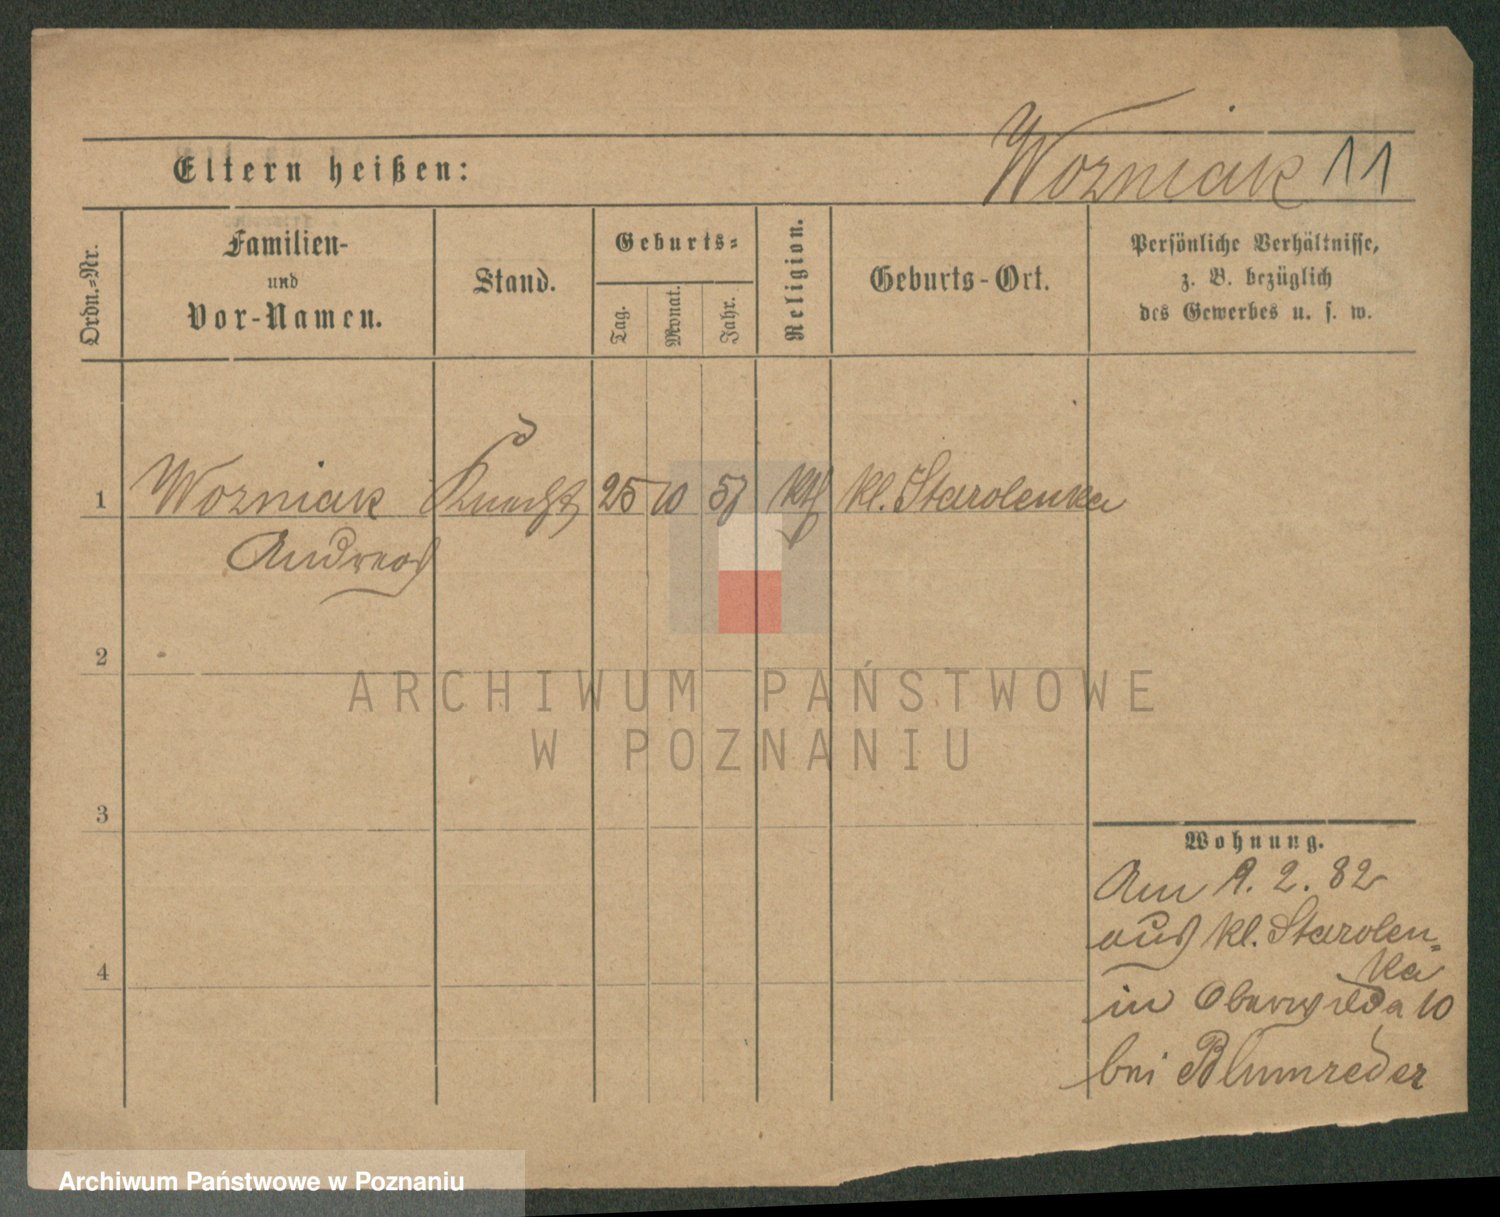 Wozniak 11
Eltern heißen:
Ordn.=Nr.
Familien-
und
Vor-Namen.
Stand.
Geburts=
Tag.
Monat.
Jahr.
Religion.
Geburts-Ort.
Persönliche Verhältnisse,
z. B. bezüglich
des Gewerbes u. s. w.
1 Wozniak Knecht 25 10 57 kth kl. Starolenka
Andreas
2
3
4
Wohnung.
Am 9. 2. 82
aus kl. Starolen=
ka
in Oberwilda 10
bei Blumreder
ARCHIWUM PAŃSTWOWE
W POZNANIU
Archiwum Państwowe w Poznaniu